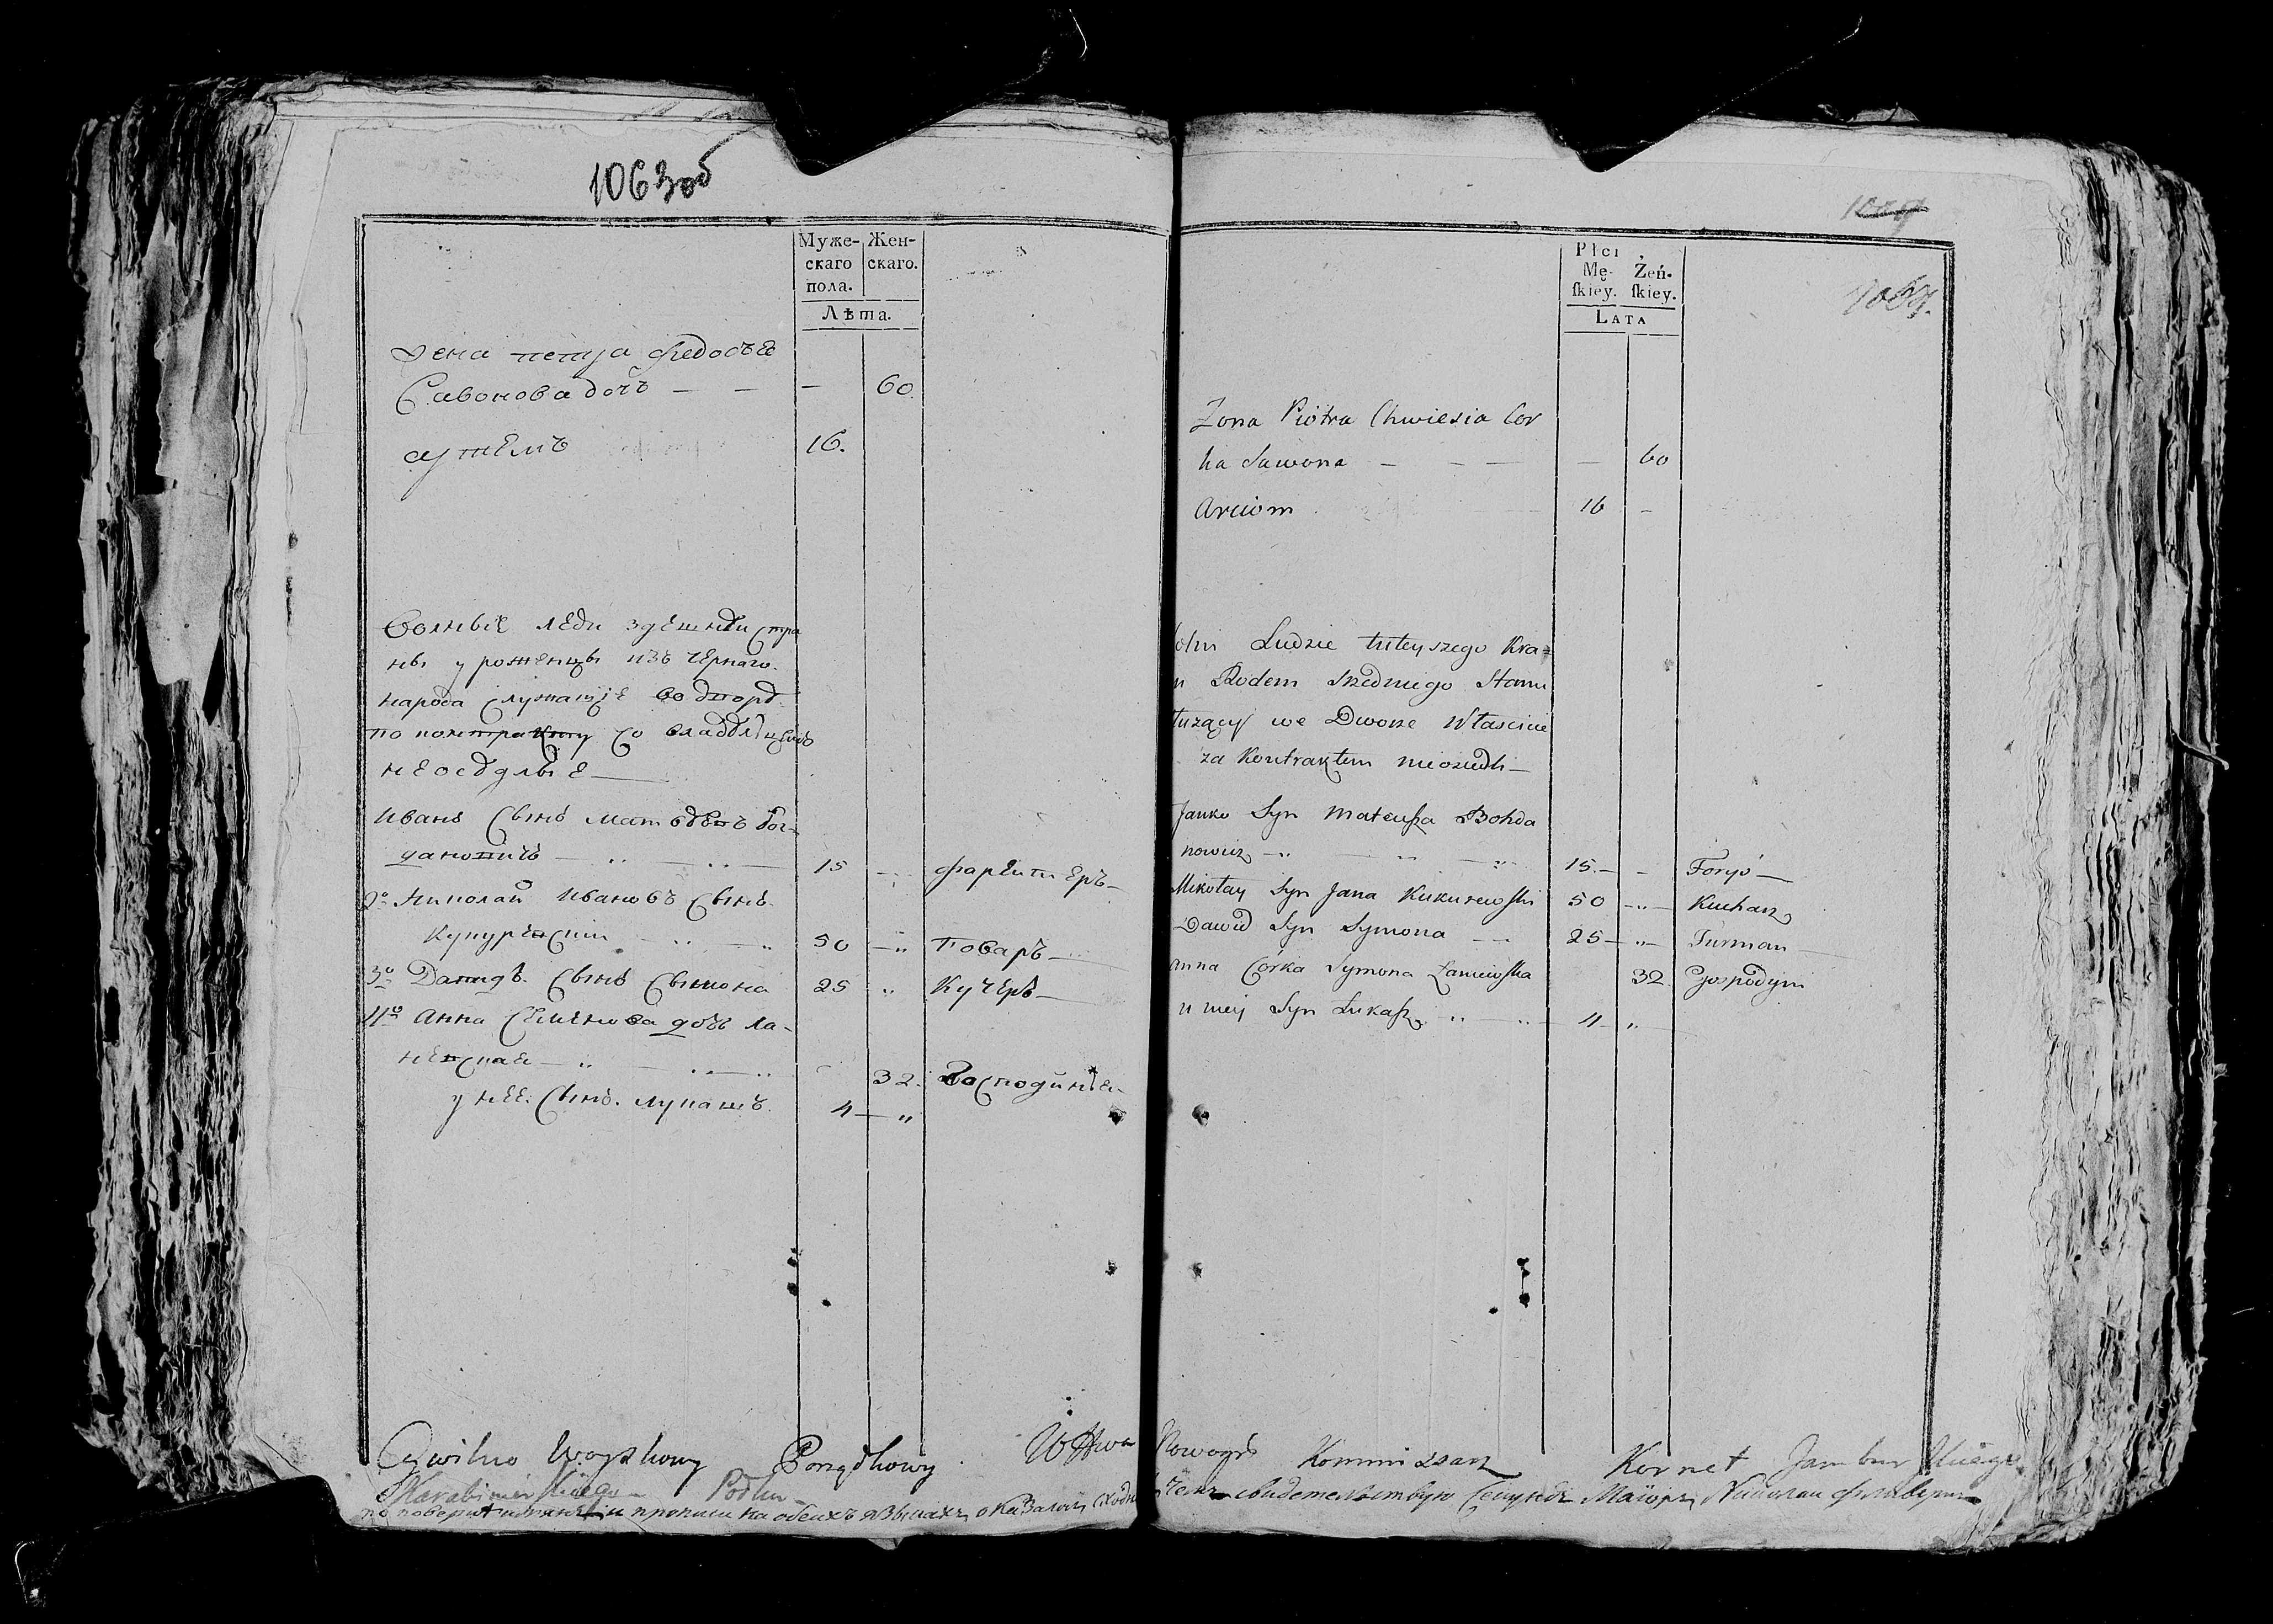 1063об
Муже- Жен-
скаго скаго.
пола.
Лѣта.
жена петра федосъе
Савонова дочъ — — — 60.
артемъ 16.
Волные леди здешнеи стра
ны урожденцы изъ черного
народа служащие во дворѣ
по контракту со владелцемъ
неоседлые —
Иванъ Сынъ матвѣевъ бог-
дановичъ — 15 — фарейтеръ —
2о Николай Ивановъ Сынъ
Кукуревский — 50 — Поваръ —
3о Давидъ Сынъ Сымона 25 „ Кучеръ —
4о Анна Семенова дочь ла-
невская — „ 32. Господиня
у нее Сынъ. лукашъ. 4 — „
Płci
Mę- Żeń-
ſkiey. ſkiey.
LATA
1064.
Zona Piotra Chwiesia Cor
ka Sawona — — — — 60
Arciom 16 –
olni Ludzie tuteyszego Kra=
u Rodem Srzedniego Stanu
łuzący we Dworze Własciciel
za Kontraktem nieosiedli —
Janko Syn Mateuſza Bohda
nowicz — 15. — – Foryś —
Mikołay Syn Jana Kukurewſki 50 — „ — Kucharz
Dawid Syn Symona — — 25 — „ — Furman —
Anna Córka Symona Łaniewſka 32 Gospodyni
u niey Syn Łukaſz „ „ 4 — „ —
Cywilno Woyskowy Porządkowy Nowogr Kommissarz Kornet Jamburſkiego
Karabinierſkiego Półku
по поверке и прописи на обеихъ языкахъ оказалось сходно въ чемъ свидетельствую Секундъ Маіоръ Николаи